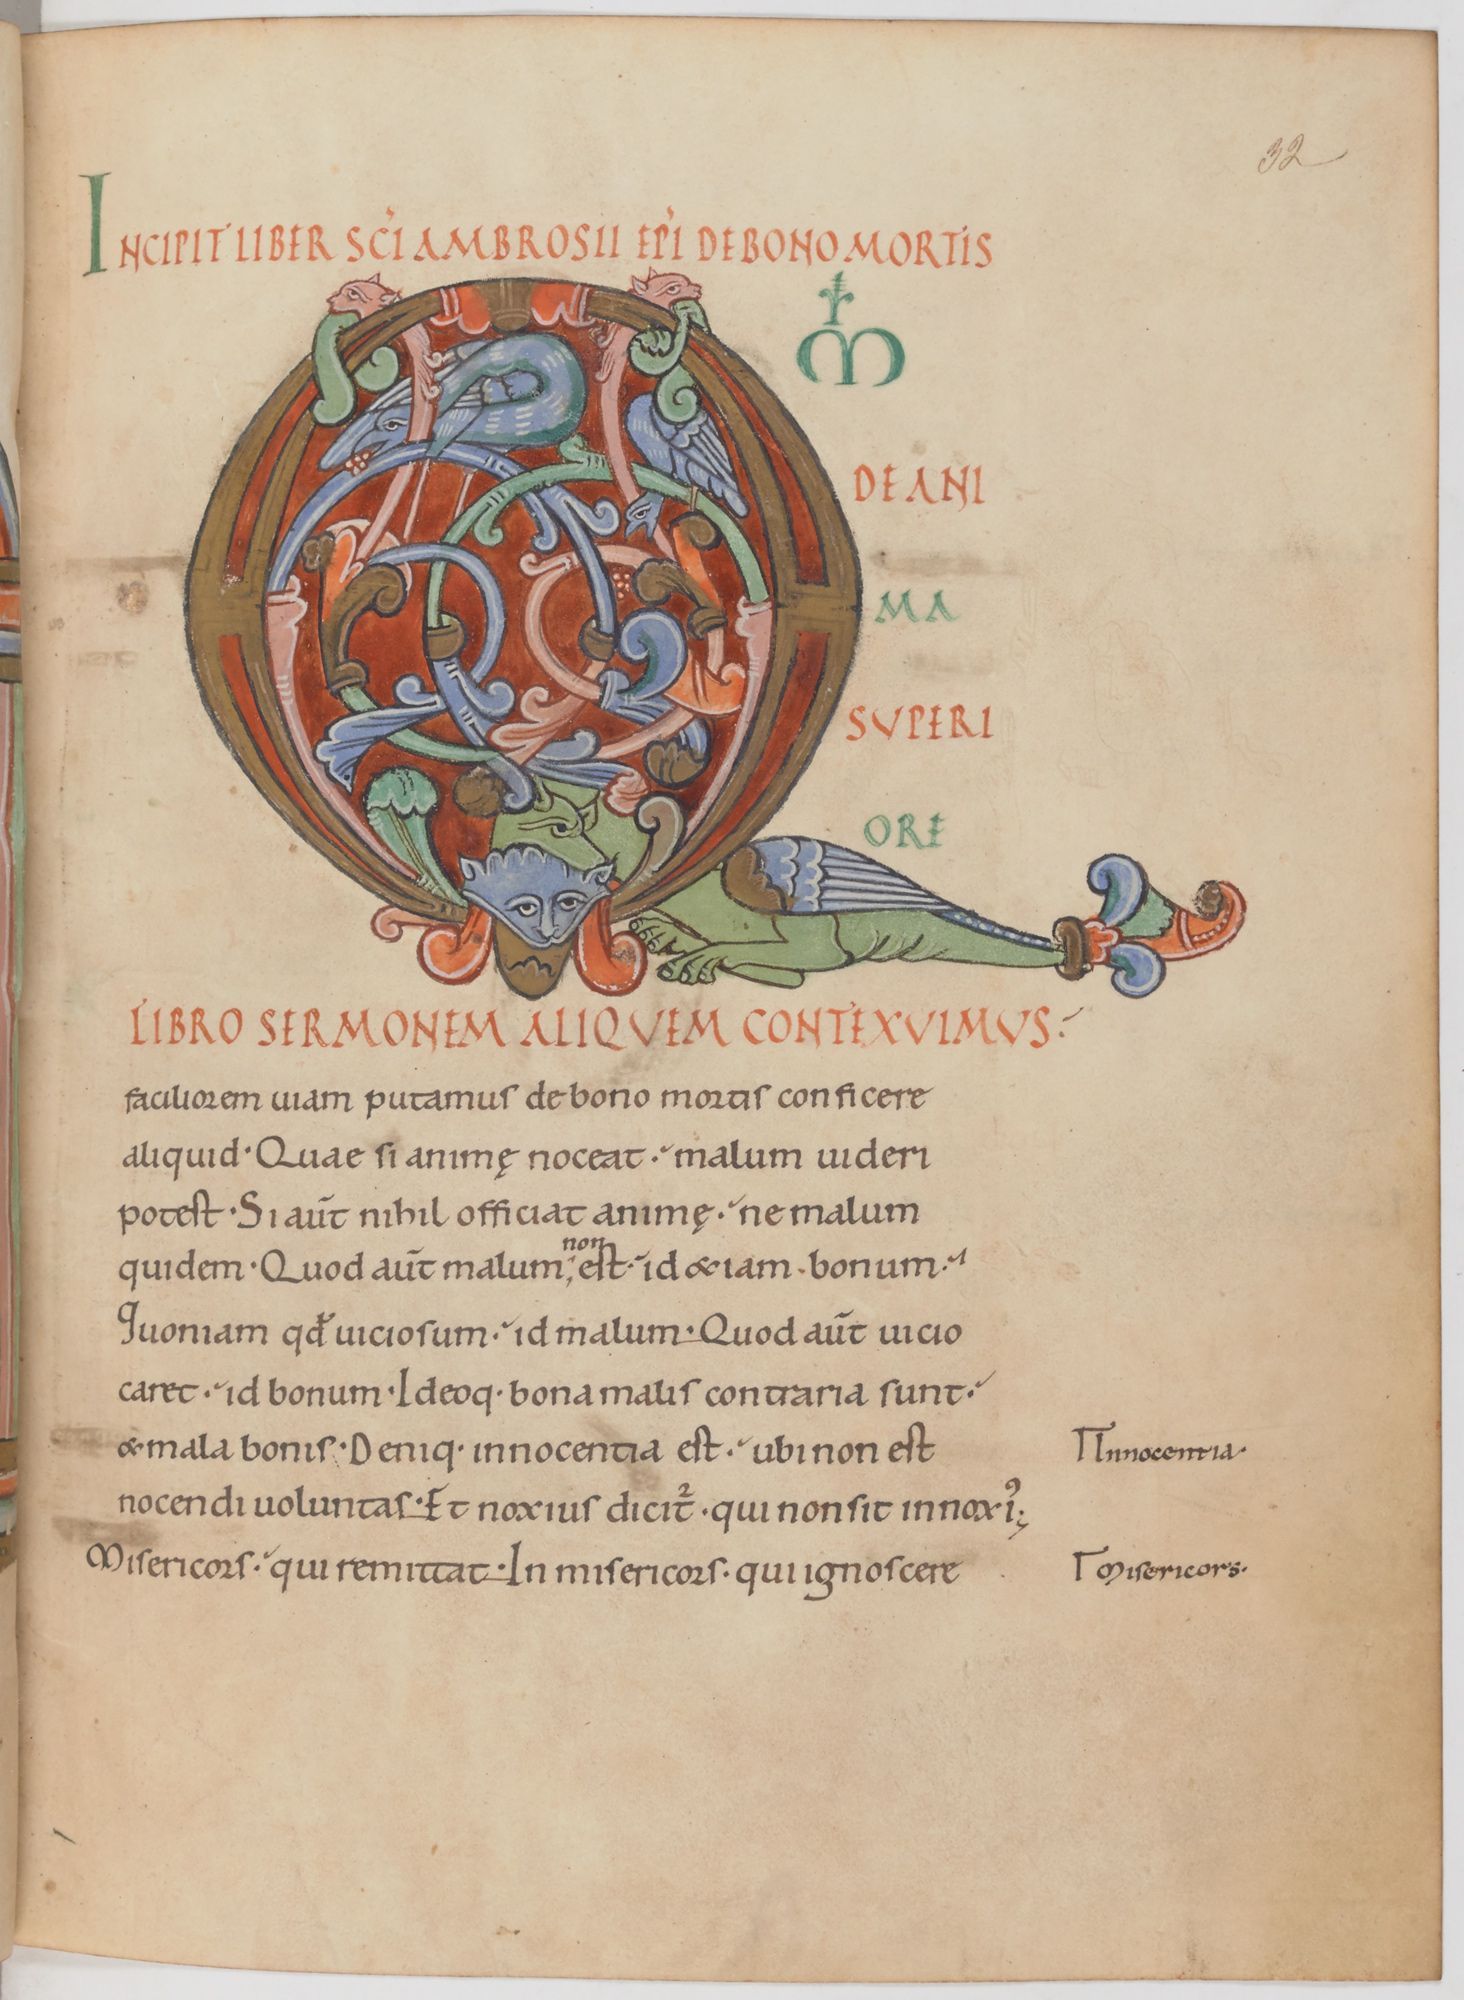 32
INCIPIT LIBER SC̄I AMBROSII EP̄I DE BONO MORTIS
Qm̄
DE ANI
MA
SVPERI
ORE
LIBRO SERMONEM ALIQVEM CONTEXVIMVS
faciliorem uiam putamus de bono mortis conficere
aliquid · Quae si animę noceat · malum uideri
potest · Si aūt nihil officiat animę · ne malum
non
quidem · Quod aūt malum, est · id &iam · bonum ·
Quoniam qđ uiciosum · id malum · Quod aūt uicio
caret · id bonum · Ideoq · bona malis contraria sunt ·
& mala bonis · Deniq · innocentia est · ubi non est
Innocentia ·
nocendi uoluntas · Et noxius dicit᷑ · qui non sit innoxiꝰ;
Misericors · qui remittat · In misericors · qui ignoscere
Misericors ·